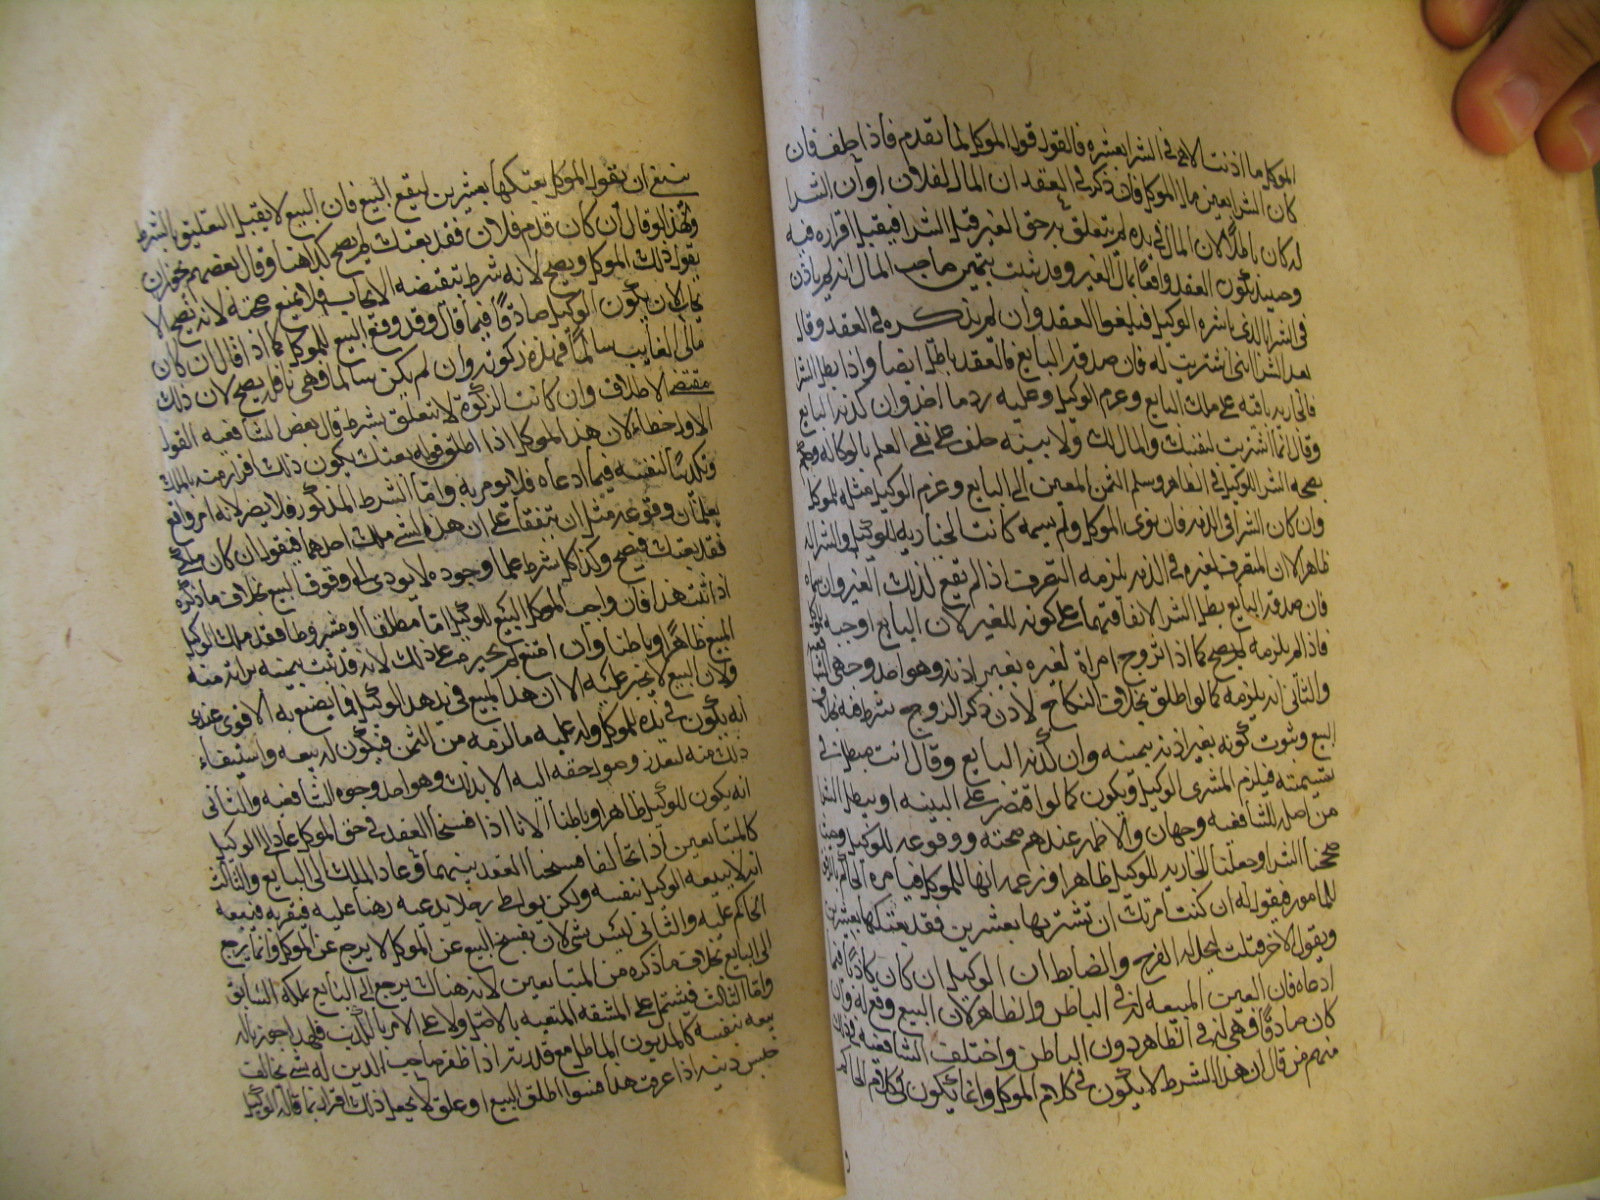 الموكل ما اذنت الا في الشرا بعشره فالقول قول الموكل لما تقدم فاذا حلف فان
كان الشرا بعين مال الموكل فان ذكر في العقد ان المال لفلان او ان الشرا
له كان باطلا لان المال في يده لم يتعلق به حق لغير قبل الشرا فيقبل اقراره فيه
وحينيذ يكون العقد واقعا بمال الغير وقد ثبت بيمين صاحب المال انه لم ياذن
في الشرا الذي باشره الوكيل فيلغوا العقد وان لم يذكره في العقد وقال
بعد الشرا انني اشتريت له فان صدقه البايع فالعقد باطل ايضا واذا بطل الشرا
فالجاريه باقيه على ملك البايع وغرم الوكيل وعليه رد ما اخذ وان كذبه البايع
وقال انما اشتريت لنفسك والمال لك ولا بينه حلف على نفي العلم بالوكاله وحكم
بصحه الشرا للوكيل في الظاهر وسلم الثمن المعين الى البايع وغرم الوكيل مثله للموكل
وان كان الشرا في الذمه فان نوى الموكل ولم يسمه كانت الجاريه للوكيل والشرا له
ظاهرا لان المتصرف لغيره في الذمه يلزمه التصرف اذا لم يقع لذلك الغير وان سماه
فان صدقه البايع بطل الشرا لاتفاقهما على كونه للغير لان البايع اوجبه للموكل
فاذا لم يلزمه لم يصح كما اذا تزوج امراة لغيره بغير اذنه وهو احد وجهي
والثاني انه يلزمه كما لو اطلق بخلاف النكاح لان ذكر الزوج شرط فيه بخلاف
البيع وثبوت كونه بغير اذنه بيمينه وان كذبه البايع وقال انت مبطل في
تسميته فيلزم المشترى الوكيل ويكون كما لو اقتصر على البينه او يبطل الشرا
من اصله للشافعيه وجهان والاظهر عندهم صحته ووقوعه للوكيل وحيث
صححنا الشرا وجعلنا الجاريه للوكيل ظاهرا وزعم انها للموكل فيامره الحاكم بالرفق
للمامور فيقول له ان كنت امرتك ان تشتريها بعشرين فقد بعتكها بعشرين
ويقول الاخر قبلت ليحل له الفرج والضابط ان الوكيل ان كان كاذبا فيما
ادعاه فان العين المبيعه له في الباطن والظاهر لان البيع وقع له وان
كان صادقا فهي له في الظاهر دون الباطن واختلف الشافعيه في ذلك
منهم من قال ان هذا الشرط لا يكون في كلام الموكل وانما يكون في كلام الحاكم
ينبغي ان يقول الموكل بعتكها بعشرين ليقع البيع فان البيع لا يقبل التعليق بالشرط
ولهذا لو قال ان كان قدم فلان فقد بعتك لم يصح كذا هنا وقال بعضهم يجوز ان
يقول ذلك الموكل ويصح لانه شرط تقتضيه الايجاب فلا يمنع صحته لانه يصح الا
بان يكون الوكيل صادقا فيما قال وقد وقع البيع للموكل كما اذا قال ان كان
مالي الغايب سالما فهذه زكوته وان لم يكن سالما وهي نافله يصح لان ذلك
مقتضى الاطلاق وان كانت الزكوة لا تتعلق بشرط قال بعض الشافعيه القول
الاول خطاء لان هذا الموكل اذا اطلق قوله بعتك يكون ذلك اقرار منه بالملك
وتكذيبا لنفسه فيما ادعاه فلا يومر به واما الشرط المذكور فلا يضر لانه امر واقع
يعلمان وقوعه مثل ان يتفقا على ان هذا الشي ملك احدهما فيقول ان كان ملكي
فقد بعتك فيصح وكذا كل شرط علما وجوده فلا يودي الى وقوف البيع بخلاف ما ذكره
اذا ثبت هذا فان واجب الموكل البيع للوكيل اما مطلقا او مشروطا فقد ملك الوكيل
المبيع ظاهرا وباطنا وان امتنع لم يجبر على ذلك لانه قد ثبت بيمينه براته منه
ولان البيع لا يجبر عليه الا ان هذا المبيع في يد هذا الوكيل فما يصنع به الاقوى عندي
انه يكون في يده للموكل وله عليه ما لزمه من الثمن فيكون له بيعه واستيفاء
ذلك منه لتعذر وصول حقه اليه الا بذلك وهو احد وجوه الشافعيه والثاني
انه يكون للوكيل ظاهرا وباطنا لانا اذا فسخنا العقد في حق الموكل عاد الى الوكيل
كالمتبايعين اذا تحالفا فسخنا العقد بينهما وعاد الملك الى البايع والثالث
انه لا يبيعه الوكيل بنفسه ولكن يواطى رجلا يدعيه رهنا عليه فيقر به فيبيعه
الحاكم عليه والثاني ليس بشي لان بفسخ البيع عن الموكل لا يرجع عن الموكل وانما يرجع
الى البايع بخلاف ما ذكره من المتبايعين لانه هناك يرجع الى البايع بملكه السابق
واما الثالث فيشتمل على المشقه المتعبه بالاصل ولا على الامر بالكذب فلهذا جوز له
بيعه بنفسه كالمديون المماطل مع قدرته اذا ظفر صاحب الدين له بشي يخالف
جنس دينه اذا عرفت هذا فسوا اطلق البيع او علق لا يجعل ذلك اقرارا بما قاله الوكيل